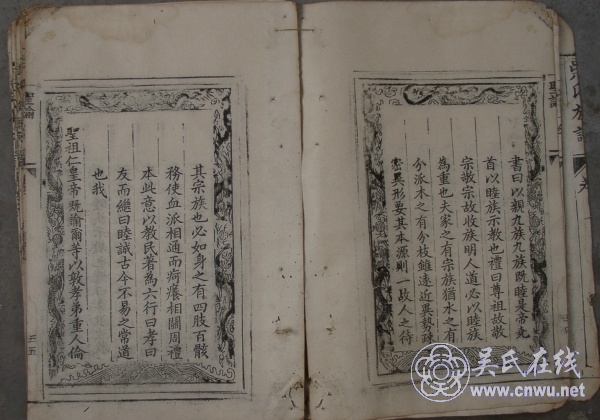 吳氏族譜
卷
聖諭
書曰以親九族九族既睦是帝堯
首以睦族示教也禮曰尊祖故敬
宗敬宗故收族明人道必以睦族
為重也夫家之有宗族猶水之有
分派木之有分枝雖遠近異勢疎
密異形要其本源則一故人之待
其宗族也必如身之有四肢百骸
務使血派相通而疴癢相關周禮
本此意以教民著為六行曰孝曰
友而繼曰睦誠古今不易之常道
也我
聖祖仁皇帝既諭爾等以敦孝弟重人倫
聖諭
三五
吴氏在线
www.cnwu.net